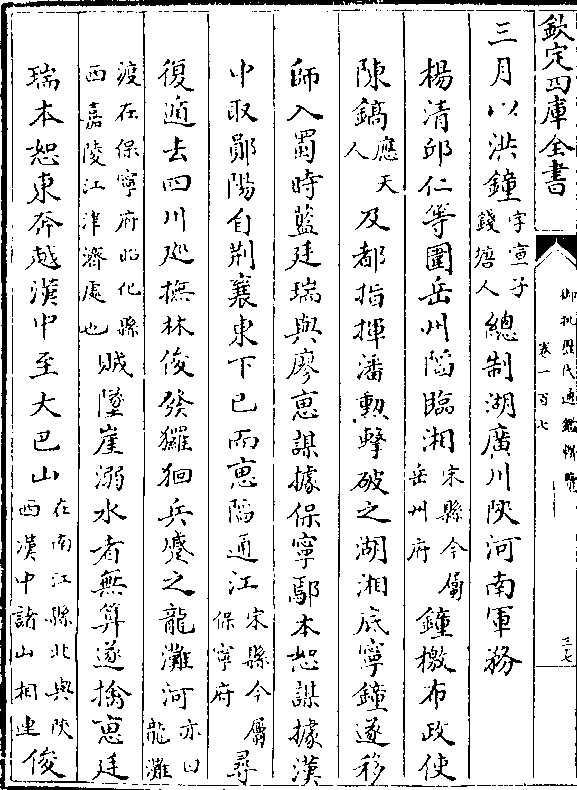 欽定四庫全書
御批歷代通鑑輯覽
卷一百七
三七
三月以洪鐘字宣子錢塘人總制湖廣川陝河南軍務
楊清邱仁等圍岳州陷臨湘宋縣今屬岳州府鐘檄布政使
陳鎬應天人及都指揮潘勲擊破之湖湘底寧鐘遂移
師入蜀時藍廷瑞與廖惠謀據保寧鄢本恕謀據漢
中取鄖陽自荆襄東下已而惠陷通江宋縣今屬保寧府尋
復遁去四川廵撫林俊發玀猓兵躄之龍灘河亦曰龍灘
渡在保寧府昭化縣西嘉陵江津濟處也賊墜崖溺水者無算遂擒惠廷
瑞本恕東奔越漢中至大巴山在南江縣北與陝西漢中諸山相連俊